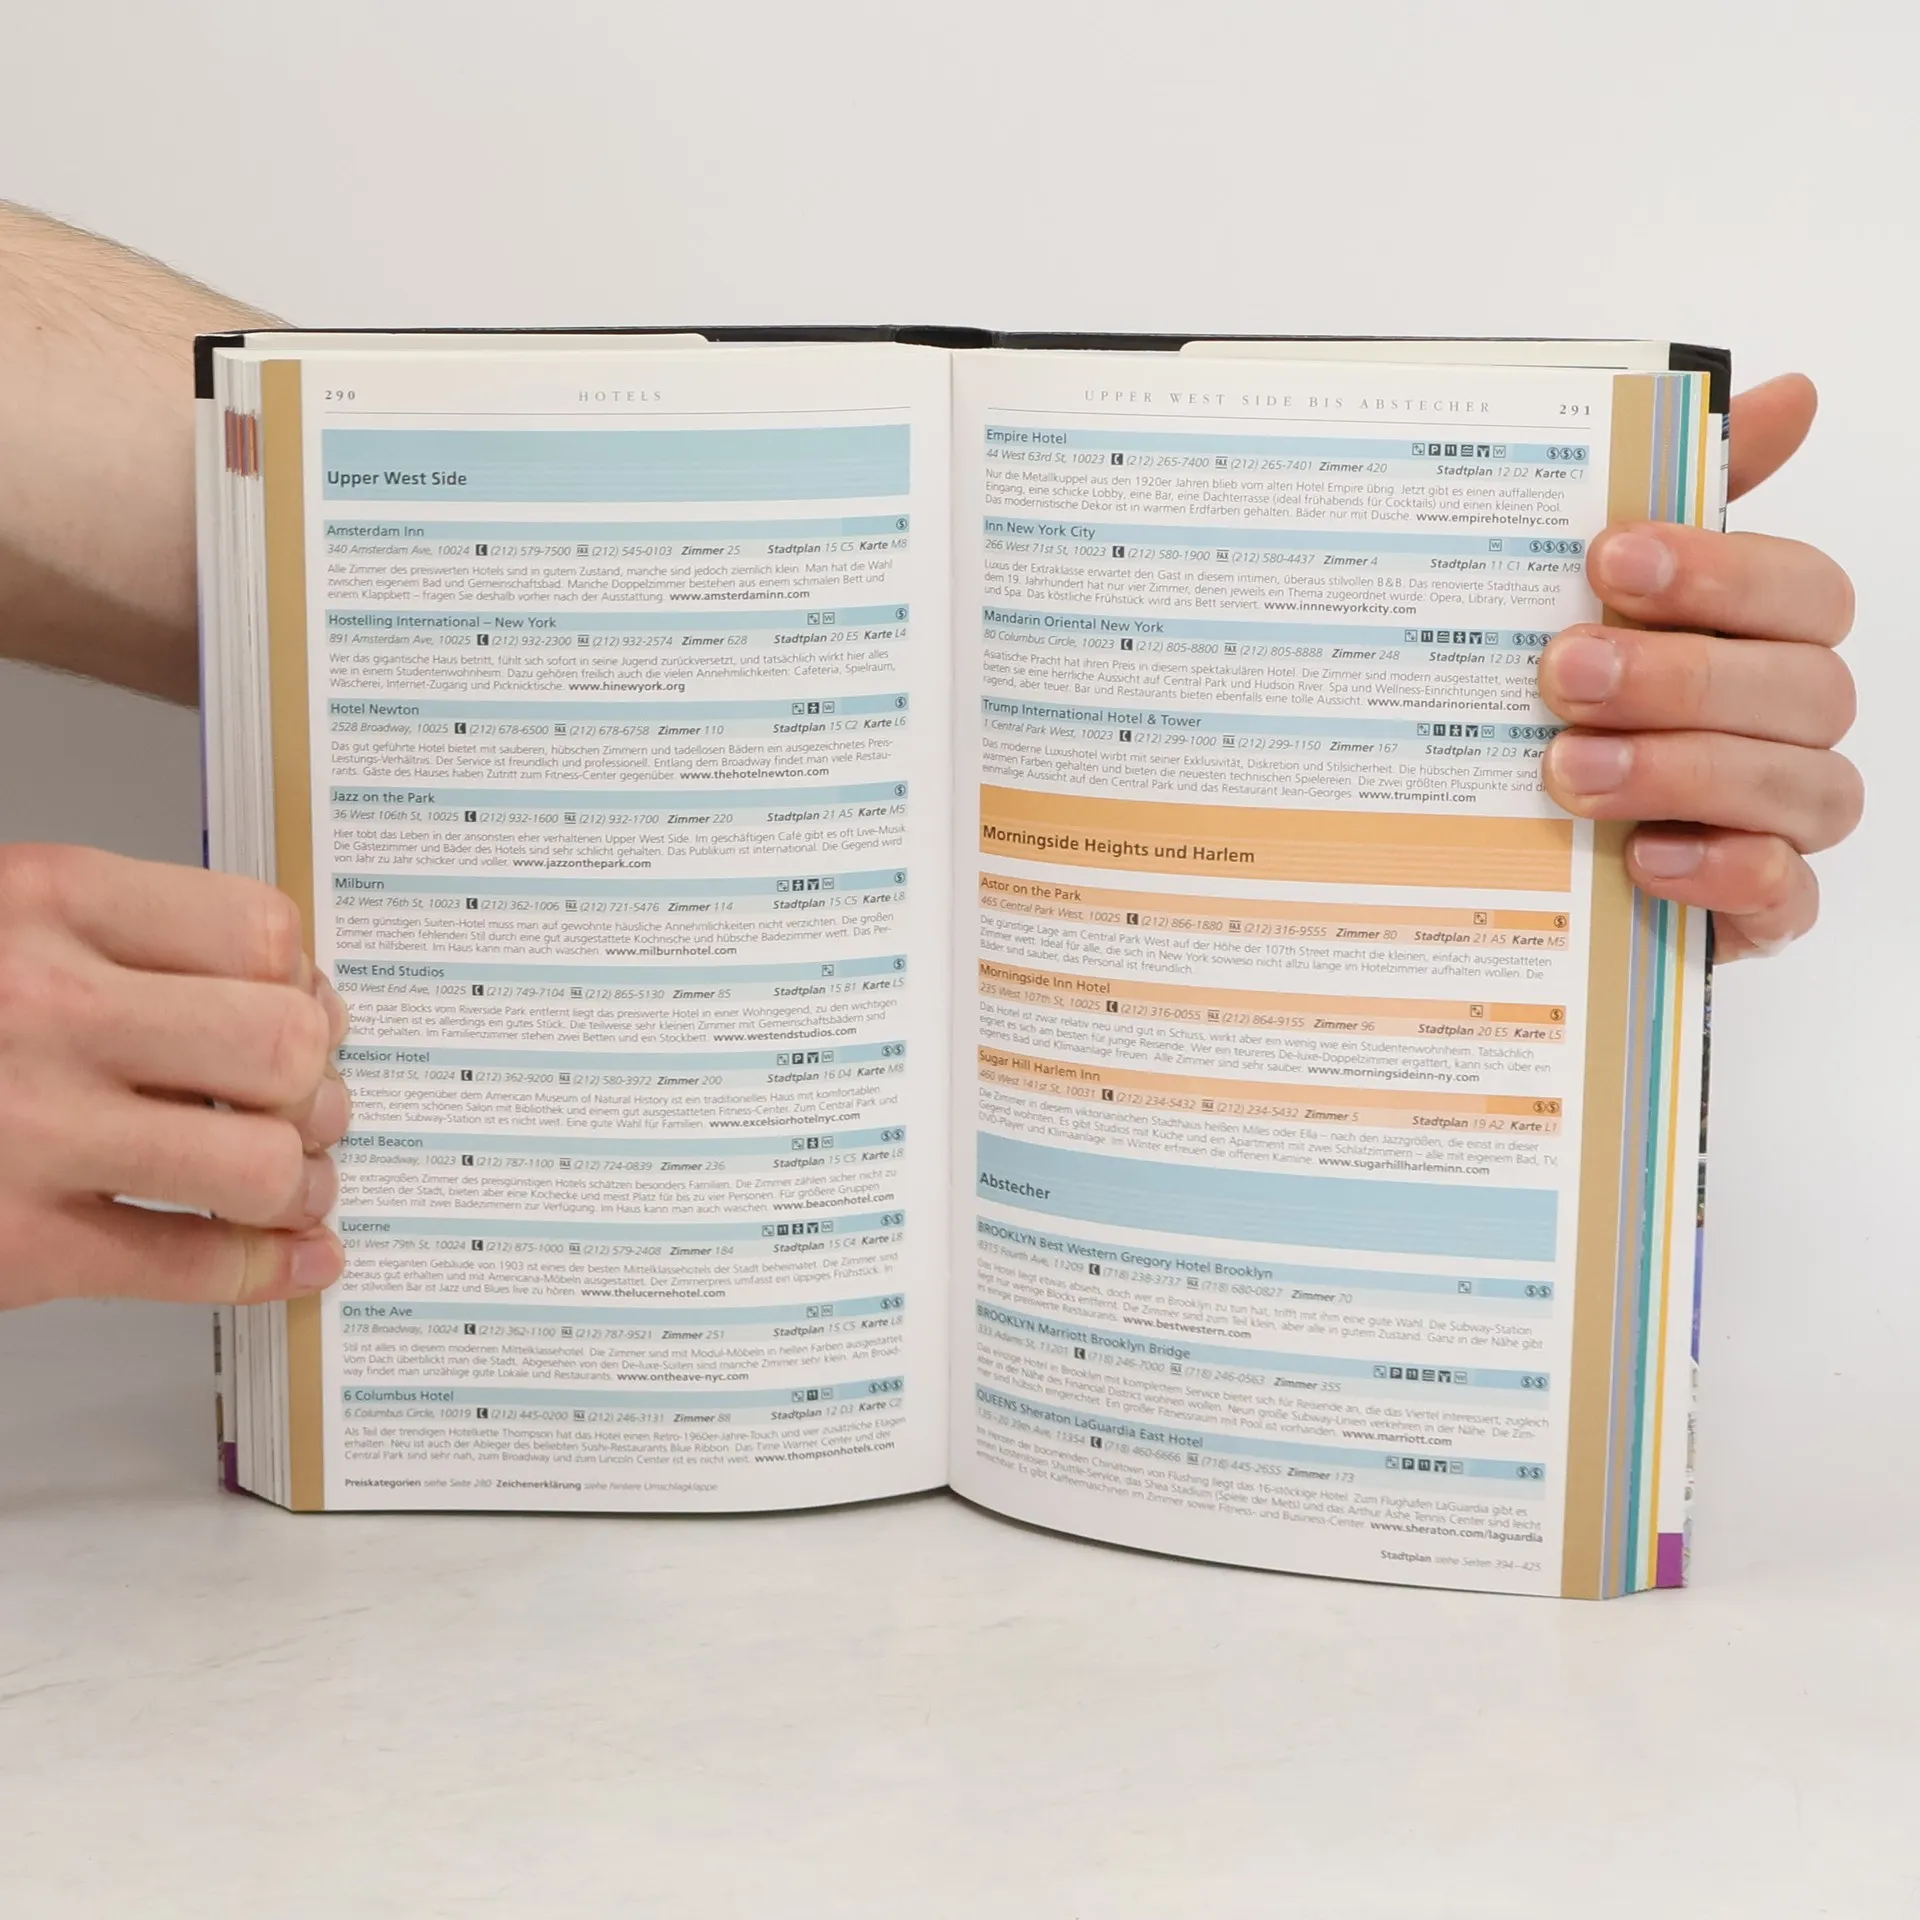 290 HOTELS
Upper West Side
Amsterdam Inn
340 Amsterdam Ave, 10024 (212) 579-7500 FAX (212) 545-0103 Zimmer 25 Stadtplan 15 C5 Karte M8
Alle Zimmer des preiswerten Hotels sind in gutem Zustand, manche sind jedoch ziemlich klein. Man hat die Wahl
zwischen eigenem Bad und Gemeinschaftsbad. Manche Doppelzimmer bestehen aus einem schmalen Bett und
einem Klappbett – fragen Sie deshalb vorher nach der Ausstattung. www.amsterdaminn.com
Hostelling International – New York
891 Amsterdam Ave, 10025 (212) 932-2300 FAX (212) 932-2574 Zimmer 628 Stadtplan 20 E5 Karte L4
Wer das gigantische Haus betritt, fühlt sich sofort in seine Jugend zurückversetzt, und tatsächlich wirkt hier alles
wie in einem Studentenwohnheim. Dazu gehören freilich auch die vielen Annehmlichkeiten: Cafeteria, Spielraum,
Wäscherei, Internet-Zugang und Picknicktische. www.hinewyork.org
Hotel Newton
2528 Broadway, 10025 (212) 678-6500 FAX (212) 678-6758 Zimmer 110 Stadtplan 15 C2 Karte L6
Das gut geführte Hotel bietet mit sauberen, hübschen Zimmern und tadellosen Bädern ein ausgezeichnetes Preis-
Leistungs-Verhältnis. Der Service ist freundlich und professionell. Entlang dem Broadway findet man viele Restau-
rants. Gäste des Hauses haben Zutritt zum Fitness-Center gegenüber. www.thehotelnewton.com
Jazz on the Park
36 West 106th St, 10025 (212) 932-1600 FAX (212) 932-1700 Zimmer 220 Stadtplan 21 A5 Karte M5
Hier tobt das Leben in der ansonsten eher verhaltenen Upper West Side. Im geschäftigen Café gibt es oft Live-Musik.
Die Gästezimmer und Bäder des Hotels sind sehr schlicht gehalten. Das Publikum ist international. Die Gegend wird
von Jahr zu Jahr schicker und voller. www.jazzonthepark.com
Milburn
242 West 76th St, 10023 (212) 362-1006 FAX (212) 721-5476 Zimmer 114 Stadtplan 15 C5 Karte L8
In dem günstigen Suiten-Hotel muss man auf gewohnte häusliche Annehmlichkeiten nicht verzichten. Die großen
Zimmer machen fehlenden Stil durch eine gut ausgestattete Kochnische und hübsche Badezimmer wett. Das Per-
sonal ist hilfsbereit. Im Haus kann man auch waschen. www.milburnhotel.com
West End Studios
850 West End Ave, 10025 (212) 749-7104 FAX (212) 865-5130 Zimmer 85 Stadtplan 15 B1 Karte L5
ur ein paar Blocks vom Riverside Park entfernt liegt das preiswerte Hotel in einer Wohngegend, zu den wichtigen
bway-Linien ist es allerdings ein gutes Stück. Die teilweise sehr kleinen Zimmer mit Gemeinschaftsbädern sind
hlicht gehalten. Im Familienzimmer stehen zwei Betten und ein Stockbett. www.westendstudios.com
Excelsior Hotel
45 West 81st St, 10024 (212) 362-9200 FAX (212) 580-3972 Zimmer 200 Stadtplan 16 D4 Karte M8
as Excelsior gegenüber dem American Museum of Natural History ist ein traditionelles Haus mit komfortablen
mmern, einem schönen Salon mit Bibliothek und einem gut ausgestatteten Fitness-Center. Zum Central Park und
r nächsten Subway-Station ist es nicht weit. Eine gute Wahl für Familien. www.excelsiorhotelnyc.com
Hotel Beacon
2130 Broadway, 10023 (212) 787-1100 FAX (212) 724-0839 Zimmer 236 Stadtplan 15 C5 Karte L8
Die extragroßen Zimmer des preisgünstigen Hotels schätzen besonders Familien. Die Zimmer zählen sicher nicht zu
den besten der Stadt, bieten aber eine Kochecke und meist Platz für bis zu vier Personen. Für größere Gruppen
stehen Suiten mit zwei Badezimmern zur Verfügung. Im Haus kann man auch waschen. www.beaconhotel.com
Lucerne
201 West 79th St, 10024 (212) 875-1000 FAX (212) 579-2408 Zimmer 184 Stadtplan 15 C4 Karte L8
n dem eleganten Gebäude von 1903 ist eines der besten Mittelklassehotels der Stadt beheimatet. Die Zimmer sind
überaus gut erhalten und mit Americana-Möbeln ausgestattet. Der Zimmerpreis umfasst ein üppiges Frühstück. In
der stilvollen Bar ist Jazz und Blues live zu hören. www.thelucernehotel.com
On the Ave
2178 Broadway, 10024 (212) 362-1100 FAX (212) 787-9521 Zimmer 251 Stadtplan 15 C5 Karte L8
Stil ist alles in diesem modernen Mittelklassehotel. Die Zimmer sind mit Modul-Möbeln in hellen Farben ausgestattet.
Vom Dach überblickt man die Stadt. Abgesehen von den De-luxe-Suiten sind manche Zimmer sehr klein. Am Broad-
way findet man unzählige gute Lokale und Restaurants. www.ontheave-nyc.com
6 Columbus Hotel
6 Columbus Circle, 10019 (212) 445-0200 FAX (212) 246-3131 Zimmer 88 Stadtplan 12 D3 Karte C2
Als Teil der trendigen Hotelkette Thompson hat das Hotel einen Retro-1960er-Jahre-Touch und vier zusätzliche Etagen
erhalten. Neu ist auch der Ableger des beliebten Sushi-Restaurants Blue Ribbon. Das Time Warner Center und der
Central Park sind sehr nah, zum Broadway und zum Lincoln Center ist es nicht weit. www.thompsonhotels.com
Preiskategorien siehe Seite 280 Zeichenerklärung siehe hintere Umschlagklappe
UPPER WEST SIDE BIS ABSTECHER 291
Empire Hotel
44 West 63rd St, 10023 (212) 265-7400 FAX (212) 265-7401 Zimmer 420 Stadtplan 12 D2 Karte C1
Nur die Metallkuppel aus den 1920er Jahren blieb vom alten Hotel Empire übrig. Jetzt gibt es einen auffallenden
Eingang, eine schicke Lobby, eine Bar, eine Dachterrasse (ideal frühabends für Cocktails) und einen kleinen Pool.
Das modernistische Dekor ist in warmen Erdfarben gehalten. Bäder nur mit Dusche. www.empirehotelnyc.com
Inn New York City
266 West 71st St, 10023 (212) 580-1900 FAX (212) 580-4437 Zimmer 4 Stadtplan 11 C1 Karte M9
Luxus der Extraklasse erwartet den Gast in diesem intimen, überaus stilvollen B & B. Das renovierte Stadthaus aus
dem 19. Jahrhundert hat nur vier Zimmer, denen jeweils ein Thema zugeordnet wurde: Opera, Library, Vermont
und Spa. Das köstliche Frühstück wird ans Bett serviert. www.innnewyorkcity.com
Mandarin Oriental New York
80 Columbus Circle, 10023 (212) 805-8800 FAX (212) 805-8888 Zimmer 248 Stadtplan 12 D3 Ka
Asiatische Pracht hat ihren Preis in diesem spektakulären Hotel. Die Zimmer sind modern ausgestattet, weiter
bieten sie eine herrliche Aussicht auf Central Park und Hudson River. Spa und Wellness-Einrichtungen sind he
ragend, aber teuer. Bar und Restaurants bieten ebenfalls eine tolle Aussicht. www.mandarinoriental.com
Trump International Hotel & Tower
1 Central Park West, 10023 (212) 299-1000 FAX (212) 299-1150 Zimmer 167 Stadtplan 12 D3 Kar
Das moderne Luxushotel wirbt mit seiner Exklusivität, Diskretion und Stilsicherheit. Die hübschen Zimmer sind
warmen Farben gehalten und bieten die neuesten technischen Spielereien. Die zwei größten Pluspunkte sind di
einmalige Aussicht auf den Central Park und das Restaurant Jean-Georges. www.trumpintl.com
Morningside Heights und Harlem
Astor on the Park
465 Central Park West, 10025 (212) 866-1880 FAX (212) 316-9555 Zimmer 80 Stadtplan 21 A5 Karte M5
Die günstige Lage am Central Park West auf der Höhe der 107th Street macht die kleinen, einfach ausgestatteten
Zimmer wett. Ideal für alle, die sich in New York sowieso nicht allzu lange im Hotelzimmer aufhalten wollen. Die
Bäder sind sauber, das Personal ist freundlich.
Morningside Inn Hotel
235 West 107th St, 10025 (212) 316-0055 FAX (212) 864-9155 Zimmer 96 Stadtplan 20 E5 Karte L5
Das Hotel ist zwar relativ neu und gut in Schuss, wirkt aber ein wenig wie ein Studentenwohnheim. Tatsächlich
eignet es sich am besten für junge Reisende. Wer ein teureres De-luxe-Doppelzimmer ergattert, kann sich über ein
eigenes Bad und Klimaanlage freuen. Alle Zimmer sind sehr sauber. www.morningsideinn-ny.com
Sugar Hill Harlem Inn
460 West 141st St, 10031 (212) 234-5432 FAX (212) 234-5432 Zimmer 5 Stadtplan 19 A2 Karte L1
Die Zimmer in diesem viktorianischen Stadthaus heißen Miles oder Ella – nach den Jazzgrößen, die einst in dieser
Gegend wohnten. Es gibt Studios mit Küche und ein Apartment mit zwei Schlafzimmern – alle mit eigenem Bad, TV,
DVD-Player und Klimaanlage. Im Winter erfreuen die offenen Kamine. www.sugarhillharleminn.com
Abstecher
BROOKLYN Best Western Gregory Hotel Brooklyn
8315 Fourth Ave, 11209 (718) 238-3737 FAX (718) 680-0827 Zimmer 70
Das Hotel liegt etwas abseits, doch wer in Brooklyn zu tun hat, trifft mit ihm eine gute Wahl. Die Subway-Station
liegt nur wenige Blocks entfernt. Die Zimmer sind zum Teil klein, aber alle in gutem Zustand. Ganz in der Nähe gibt
es einige preiswerte Restaurants. www.bestwestern.com
BROOKLYN Marriott Brooklyn Bridge
333 Adams St, 11201 (718) 246-7000 FAX (718) 246-0563 Zimmer 355
Das einzige Hotel in Brooklyn mit komplettem Service bietet sich für Reisende an, die das Viertel interessiert, zugleich
aber in der Nähe des Financial District wohnen wollen. Neun große Subway-Linien verkehren in der Nähe. Die Zim-
mer sind hübsch eingerichtet. Ein großer Fitnessraum mit Pool ist vorhanden. www.marriott.com
QUEENS Sheraton LaGuardia East Hotel
135-20 39th Ave, 11354 (718) 460-6666 FAX (718) 445-2655 Zimmer 173
Im Herzen der boomenden Chinatown von Flushing liegt das 16-stöckige Hotel. Zum Flughafen LaGuardia gibt es
einen kostenlosen Shuttle-Service, das Shea Stadium (Spiele der Mets) und das Arthur Ashe Tennis Center sind leicht
erreichbar. Es gibt Kaffeemaschinen im Zimmer sowie Fitness- und Business-Center. www.sheraton.com/laguardia
Stadtplan siehe Seiten 394–425